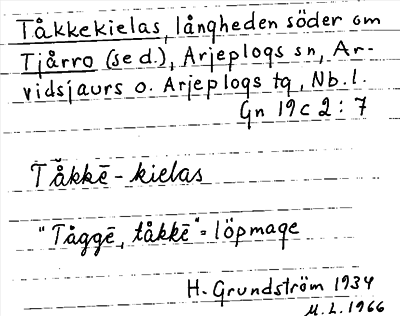 Tåkkekielas, långheden söder om
Tjårro (se d.), Arjeplogs sn, Ar-
vidsjaurs o. Arjeplogs tg, Nb. l.
Gn 19 c 2 : 7
Tåkkē - kielas
"Tåggē, tåkkē" = löpmage
H. Grundström 1934
M. L. 1966